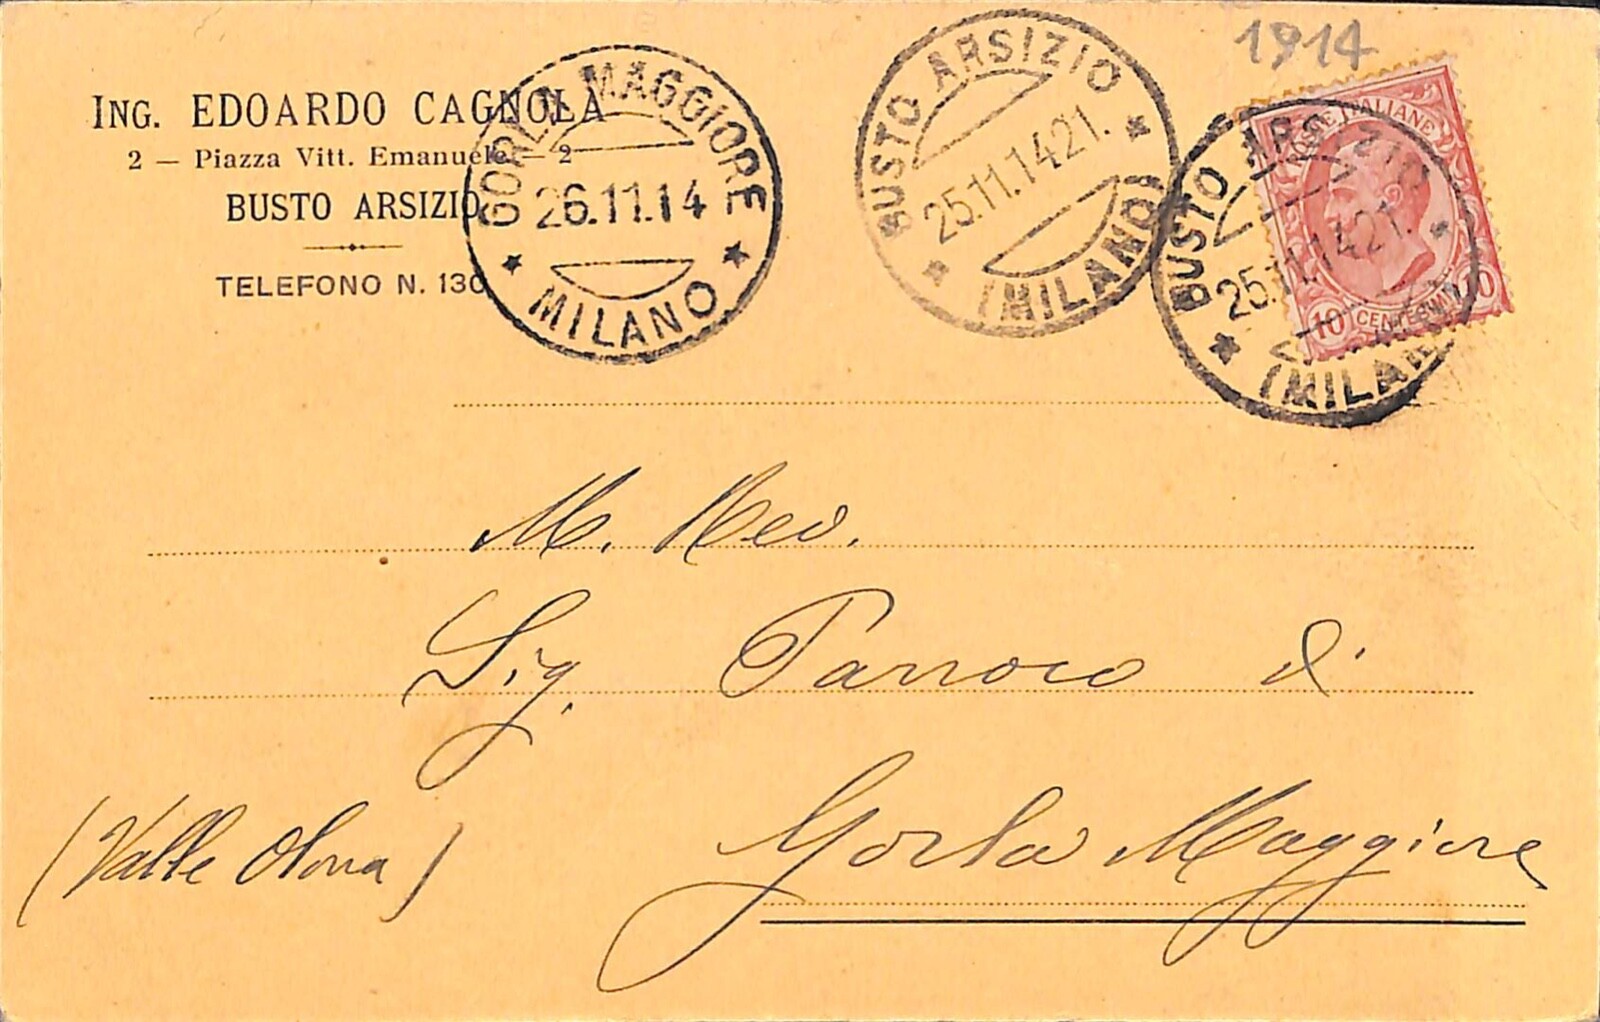 1914
ING. EDOARDO CAGNOLA
2 — Piazza Vitt. Emanuele — 2
BUSTO ARSIZIO
TELEFONO N. 130
GORLA MAGGIORE
26.11.14
MILANO
BUSTO ARSIZIO
25.11.14 21.
(MILANO)
BUSTO ARSIZIO
25.11.14 21.
(MILANO)
POSTE ITALIANE
10 CENTESIMI 10
M. Rev.
Sig. Parroco di
Gorla Maggiore
(Valle Olona)